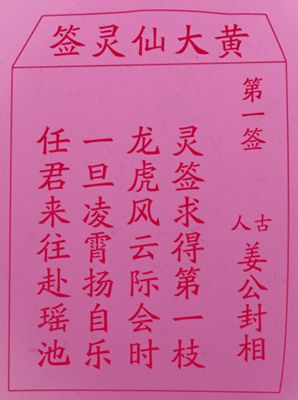 黄大仙灵签
第一签
古人
姜公封相
灵签求得第一枝
龙虎风云际会时
一旦凌霄扬自乐
任君来往赴瑶池